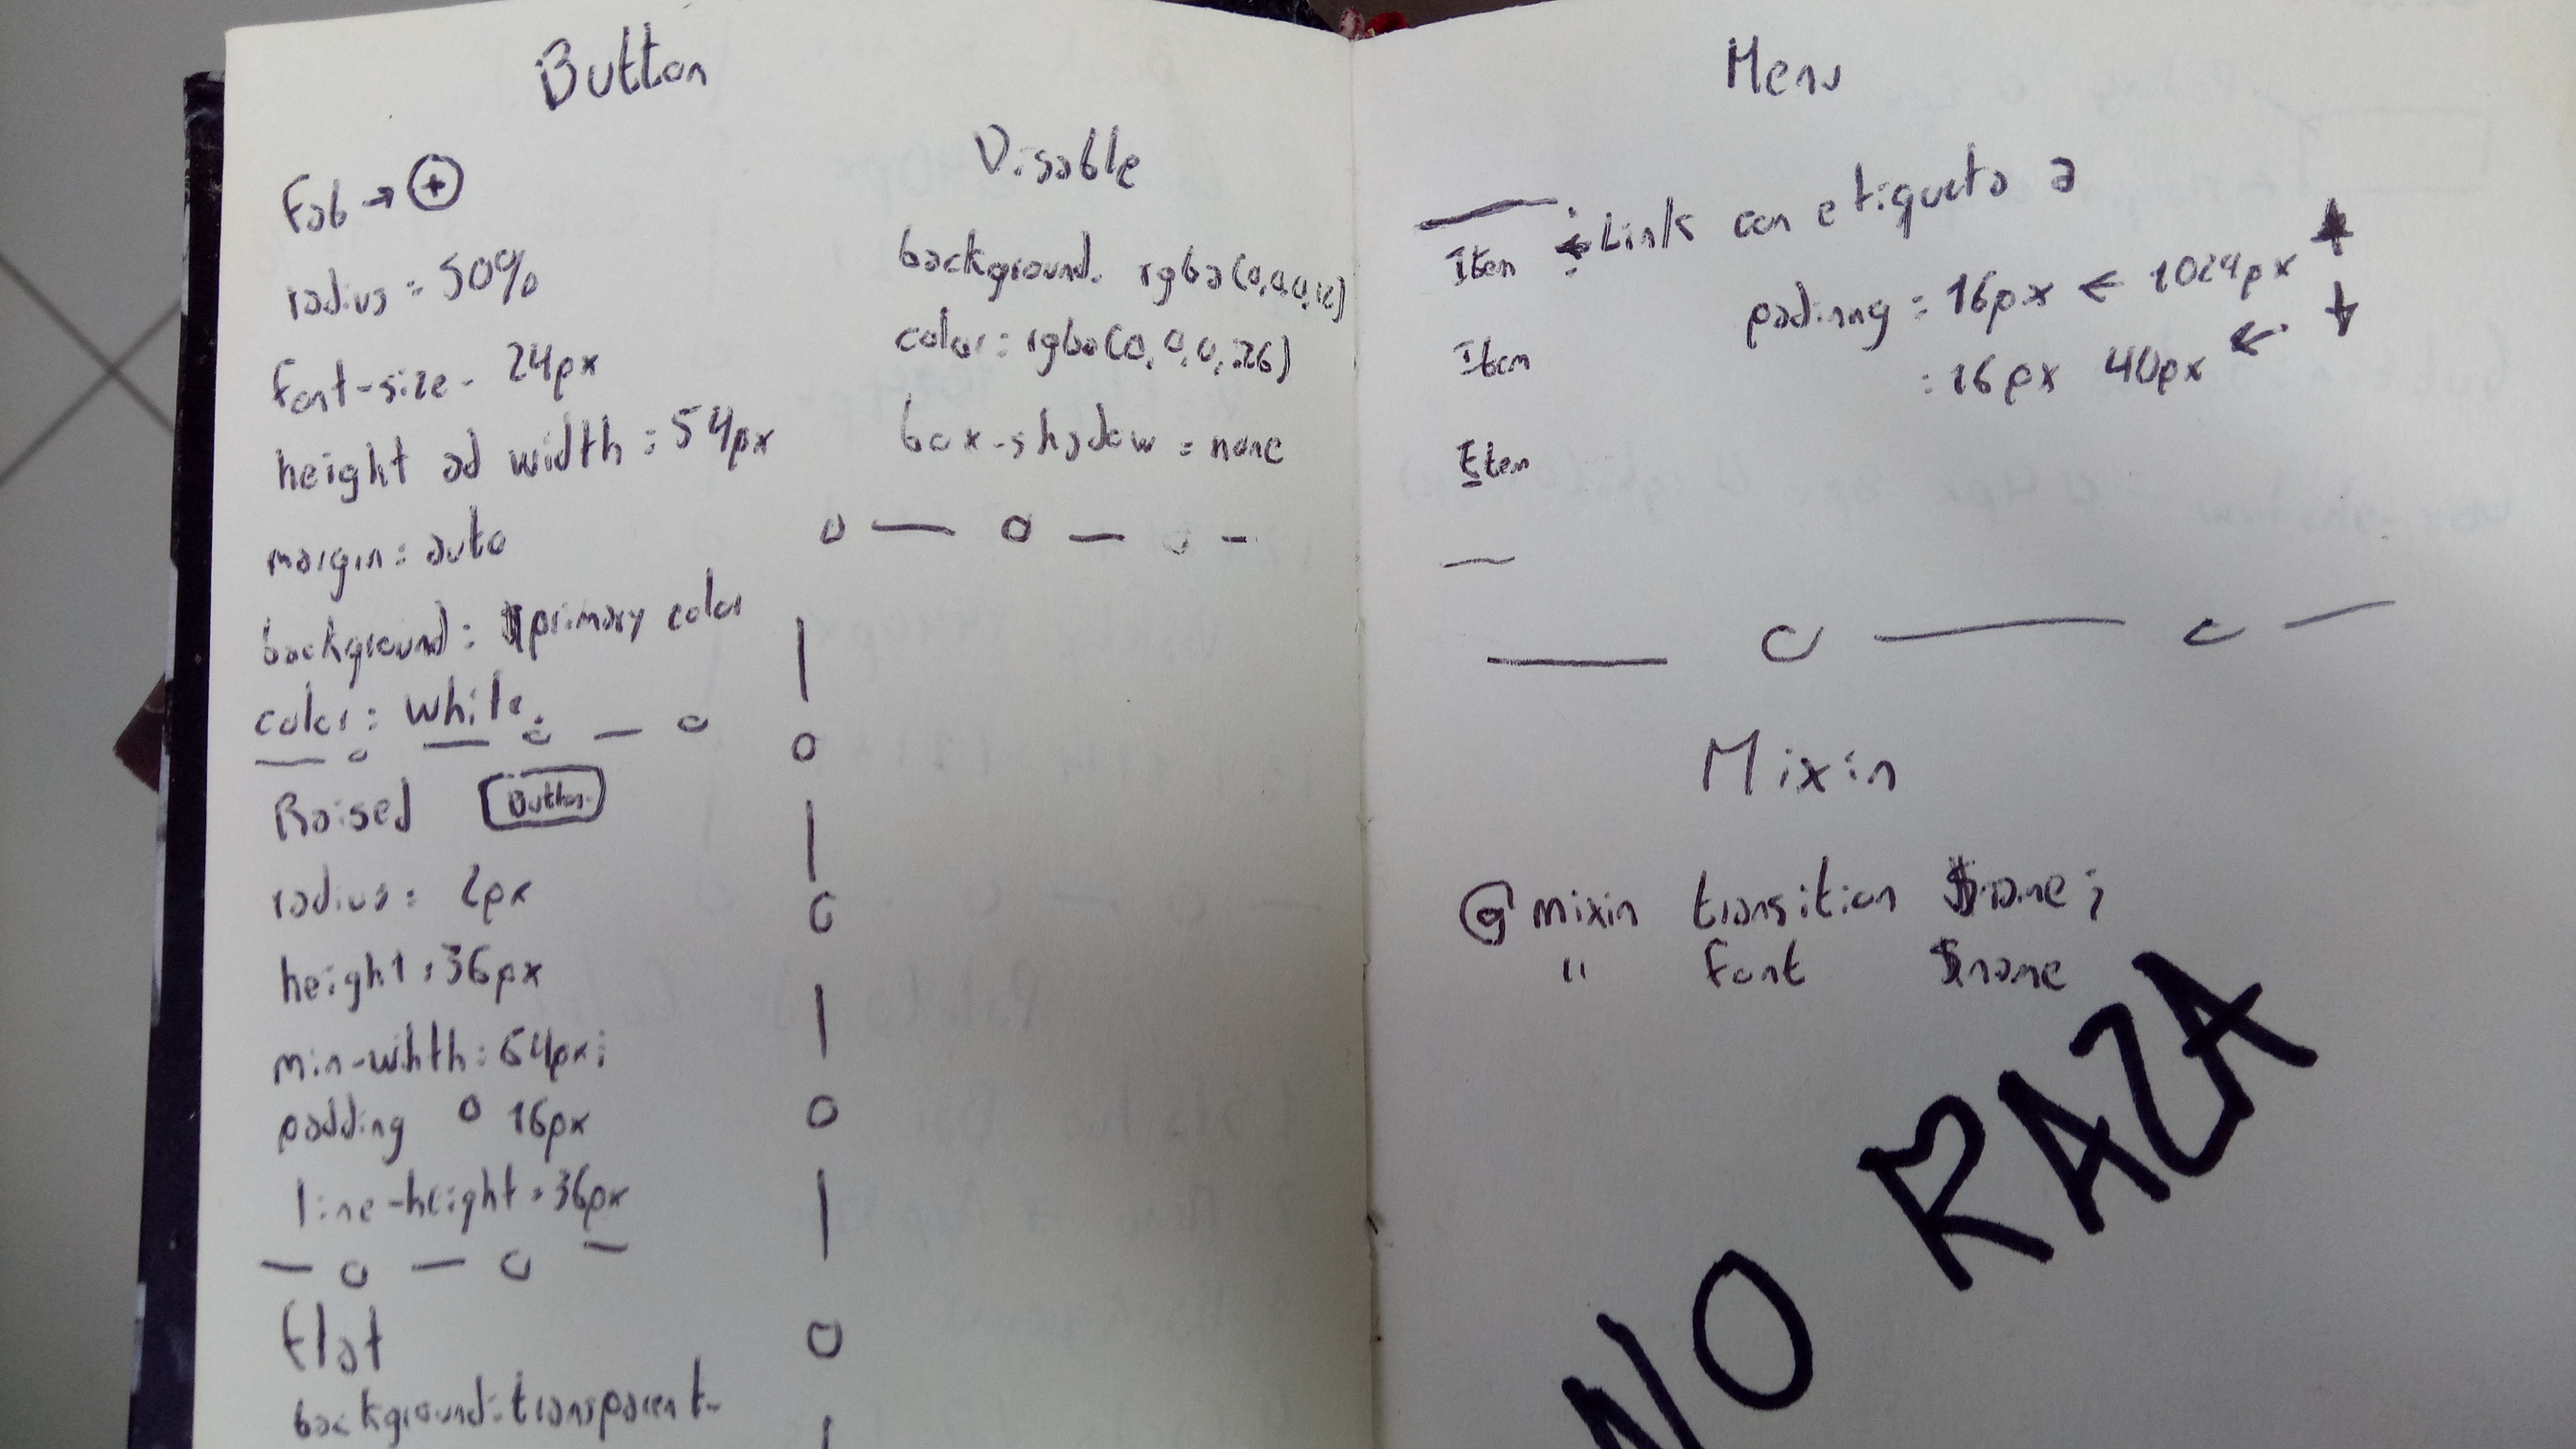 Button
Fab → +
radius = 50%
font-size - 24px
height ad width : 54px
margin: auto
background: $primary color
color: white.
Raised Button
radius: 2px
height: 36px
min-wihth: 64px;
padding 0 16px
line-height: 36px
Flat
background: transparent
Disable
background. rgba(0,0,0,12)
color: rgba(0,0,0,.26)
box-shadow: none
Menu
Item ← Link con etiqueta a
padinng : 16px ← 1024px ↑
Item : 16px 40px ← ↓
Item
Mixin
@mixin transition $name;
" font $name
NO RAZA